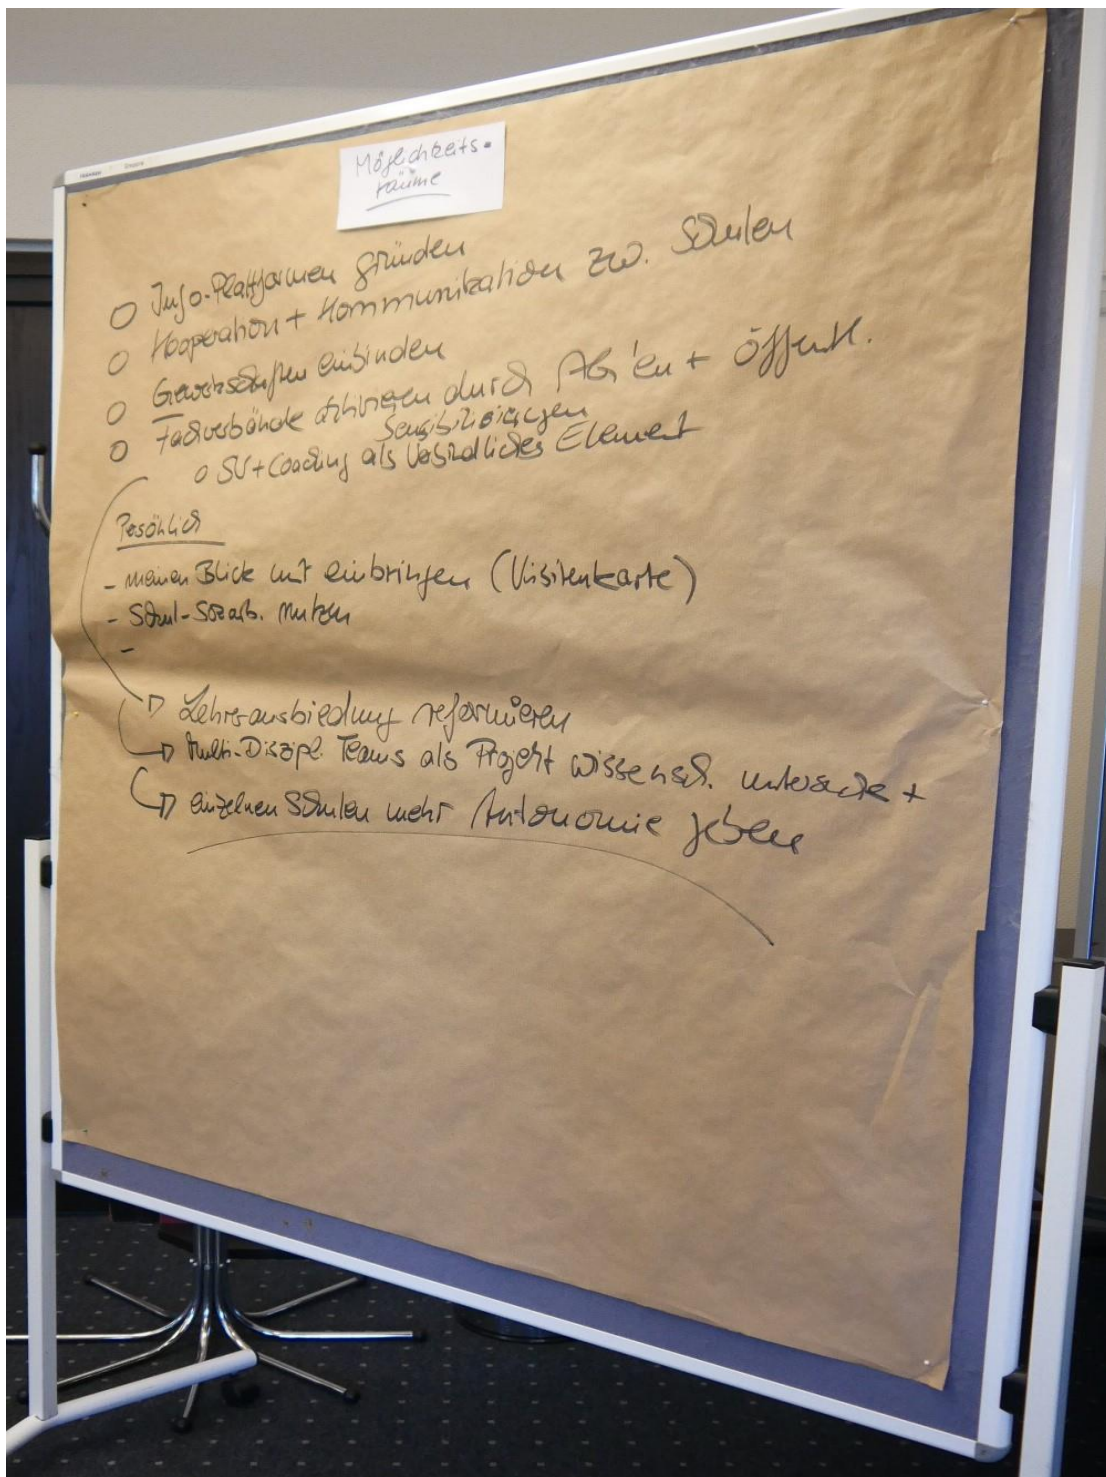 Möglichkeits-
räume
Info-Plattformen gründen
Kooperation + Kommunikation zw. Schulen
Gewerkschaften einbinden
Fachverbände aktivieren durch AG'en + öffentl.
Sensibilisierungen
SV + Coaching als verbindliches Element
Persönlich
- meinen Blick mit einbringen (Visitenkarte)
- Schul-Sozarb. nutzen
-
Lehrerausbildung reformieren
Multi-Diszipl. Teams als Projekt wissensch. +
einzelnen Schulen mehr Autonomie geben